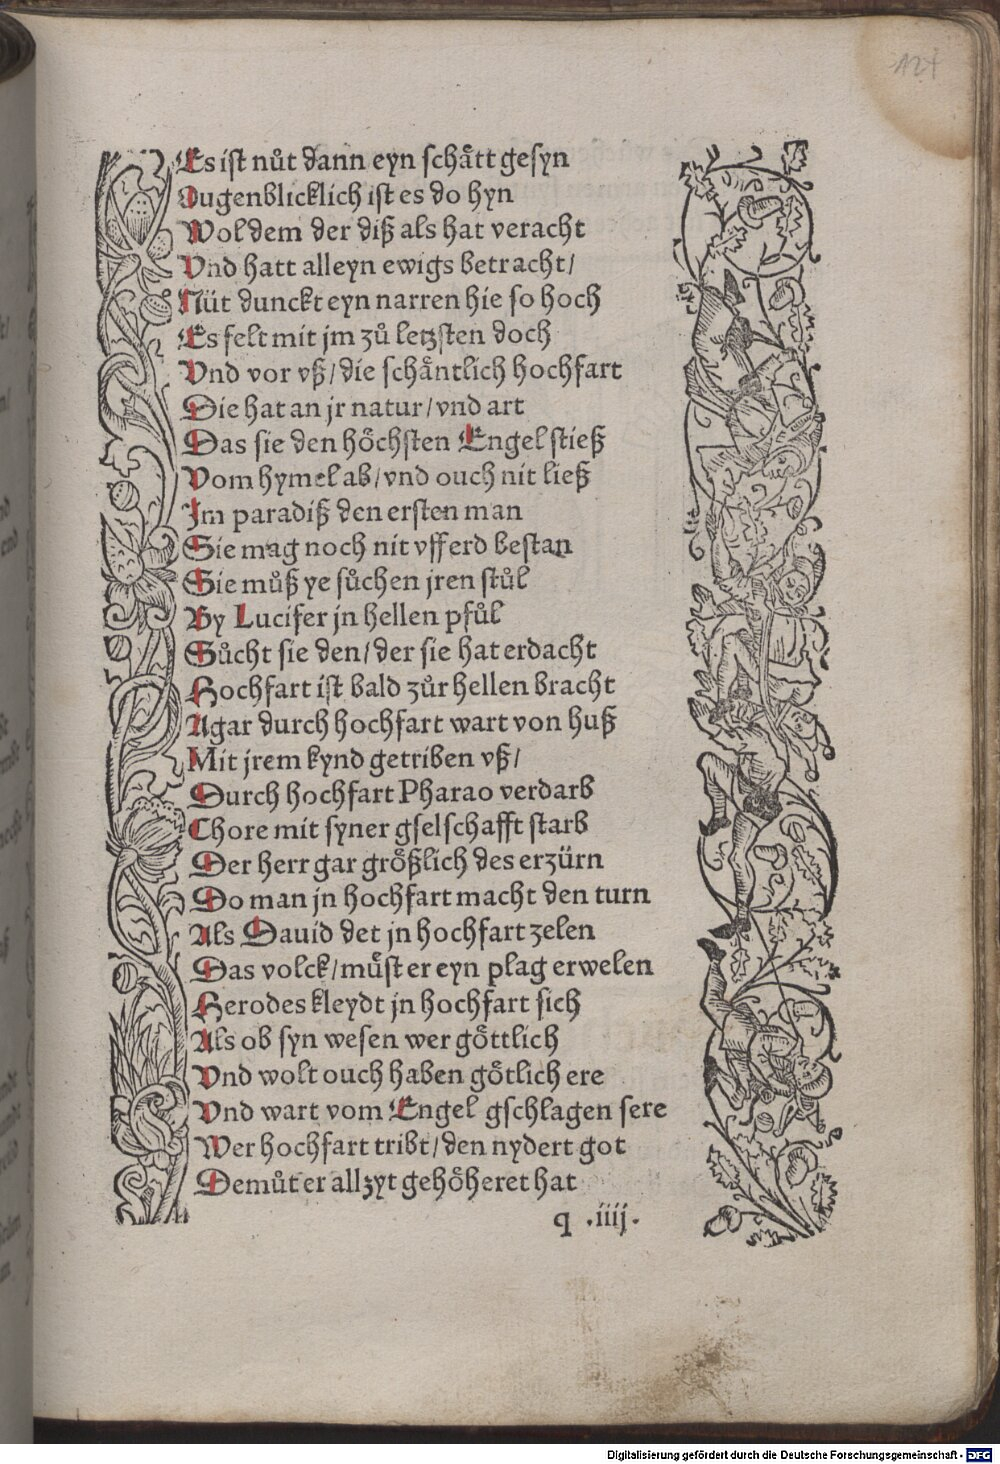 124
Es ist nůt dann eyn schått gesyn
Ougenblicklich ist es do hyn
Wol dem der diß als hat veracht
Vnd hatt alleyn ewigs betracht/
Nüt dunckt eyn narren hie so hoch
Es felt mit jm zů letzsten doch
Vnd vor vß/die schåntlich hochfart
Die hat an jr natur/vnd art
Das sie den höchsten Engel stieß
Vom hymel ab/vnd ouch nit ließ
Jm paradiß den ersten man
Sie mag noch nit vff erd bestan
Sie můß ye sůchen jren stůl
By Lucifer jn hellen pfůl
Sůcht sie den/der sie hat erdacht
Hochfart ist bald zůr hellen bracht
Agar durch hochfart wart von huß
Mit jrem kynd getriben vß/
Durch hochfart Pharao verdarb
Chore mit syner gselschafft starb
Der herr gar größlich des erzürn
Do man jn hochfart macht den turn
Als Dauid det jn hochfart zelen
Das volck/můst er eyn plag erwelen
Herodes kleydt jn hochfart sich
Als ob syn wesen wer göttlich
Vnd wolt ouch haben götlich ere
Vnd wart vom Engel gschlagen sere
Wer hochfart tribt/den nydert got
Demůt er allzyt gehöheret hat
q .iiij.
Digitalisierung gefördert durch die Deutsche Forschungsgemeinschaft - DFG